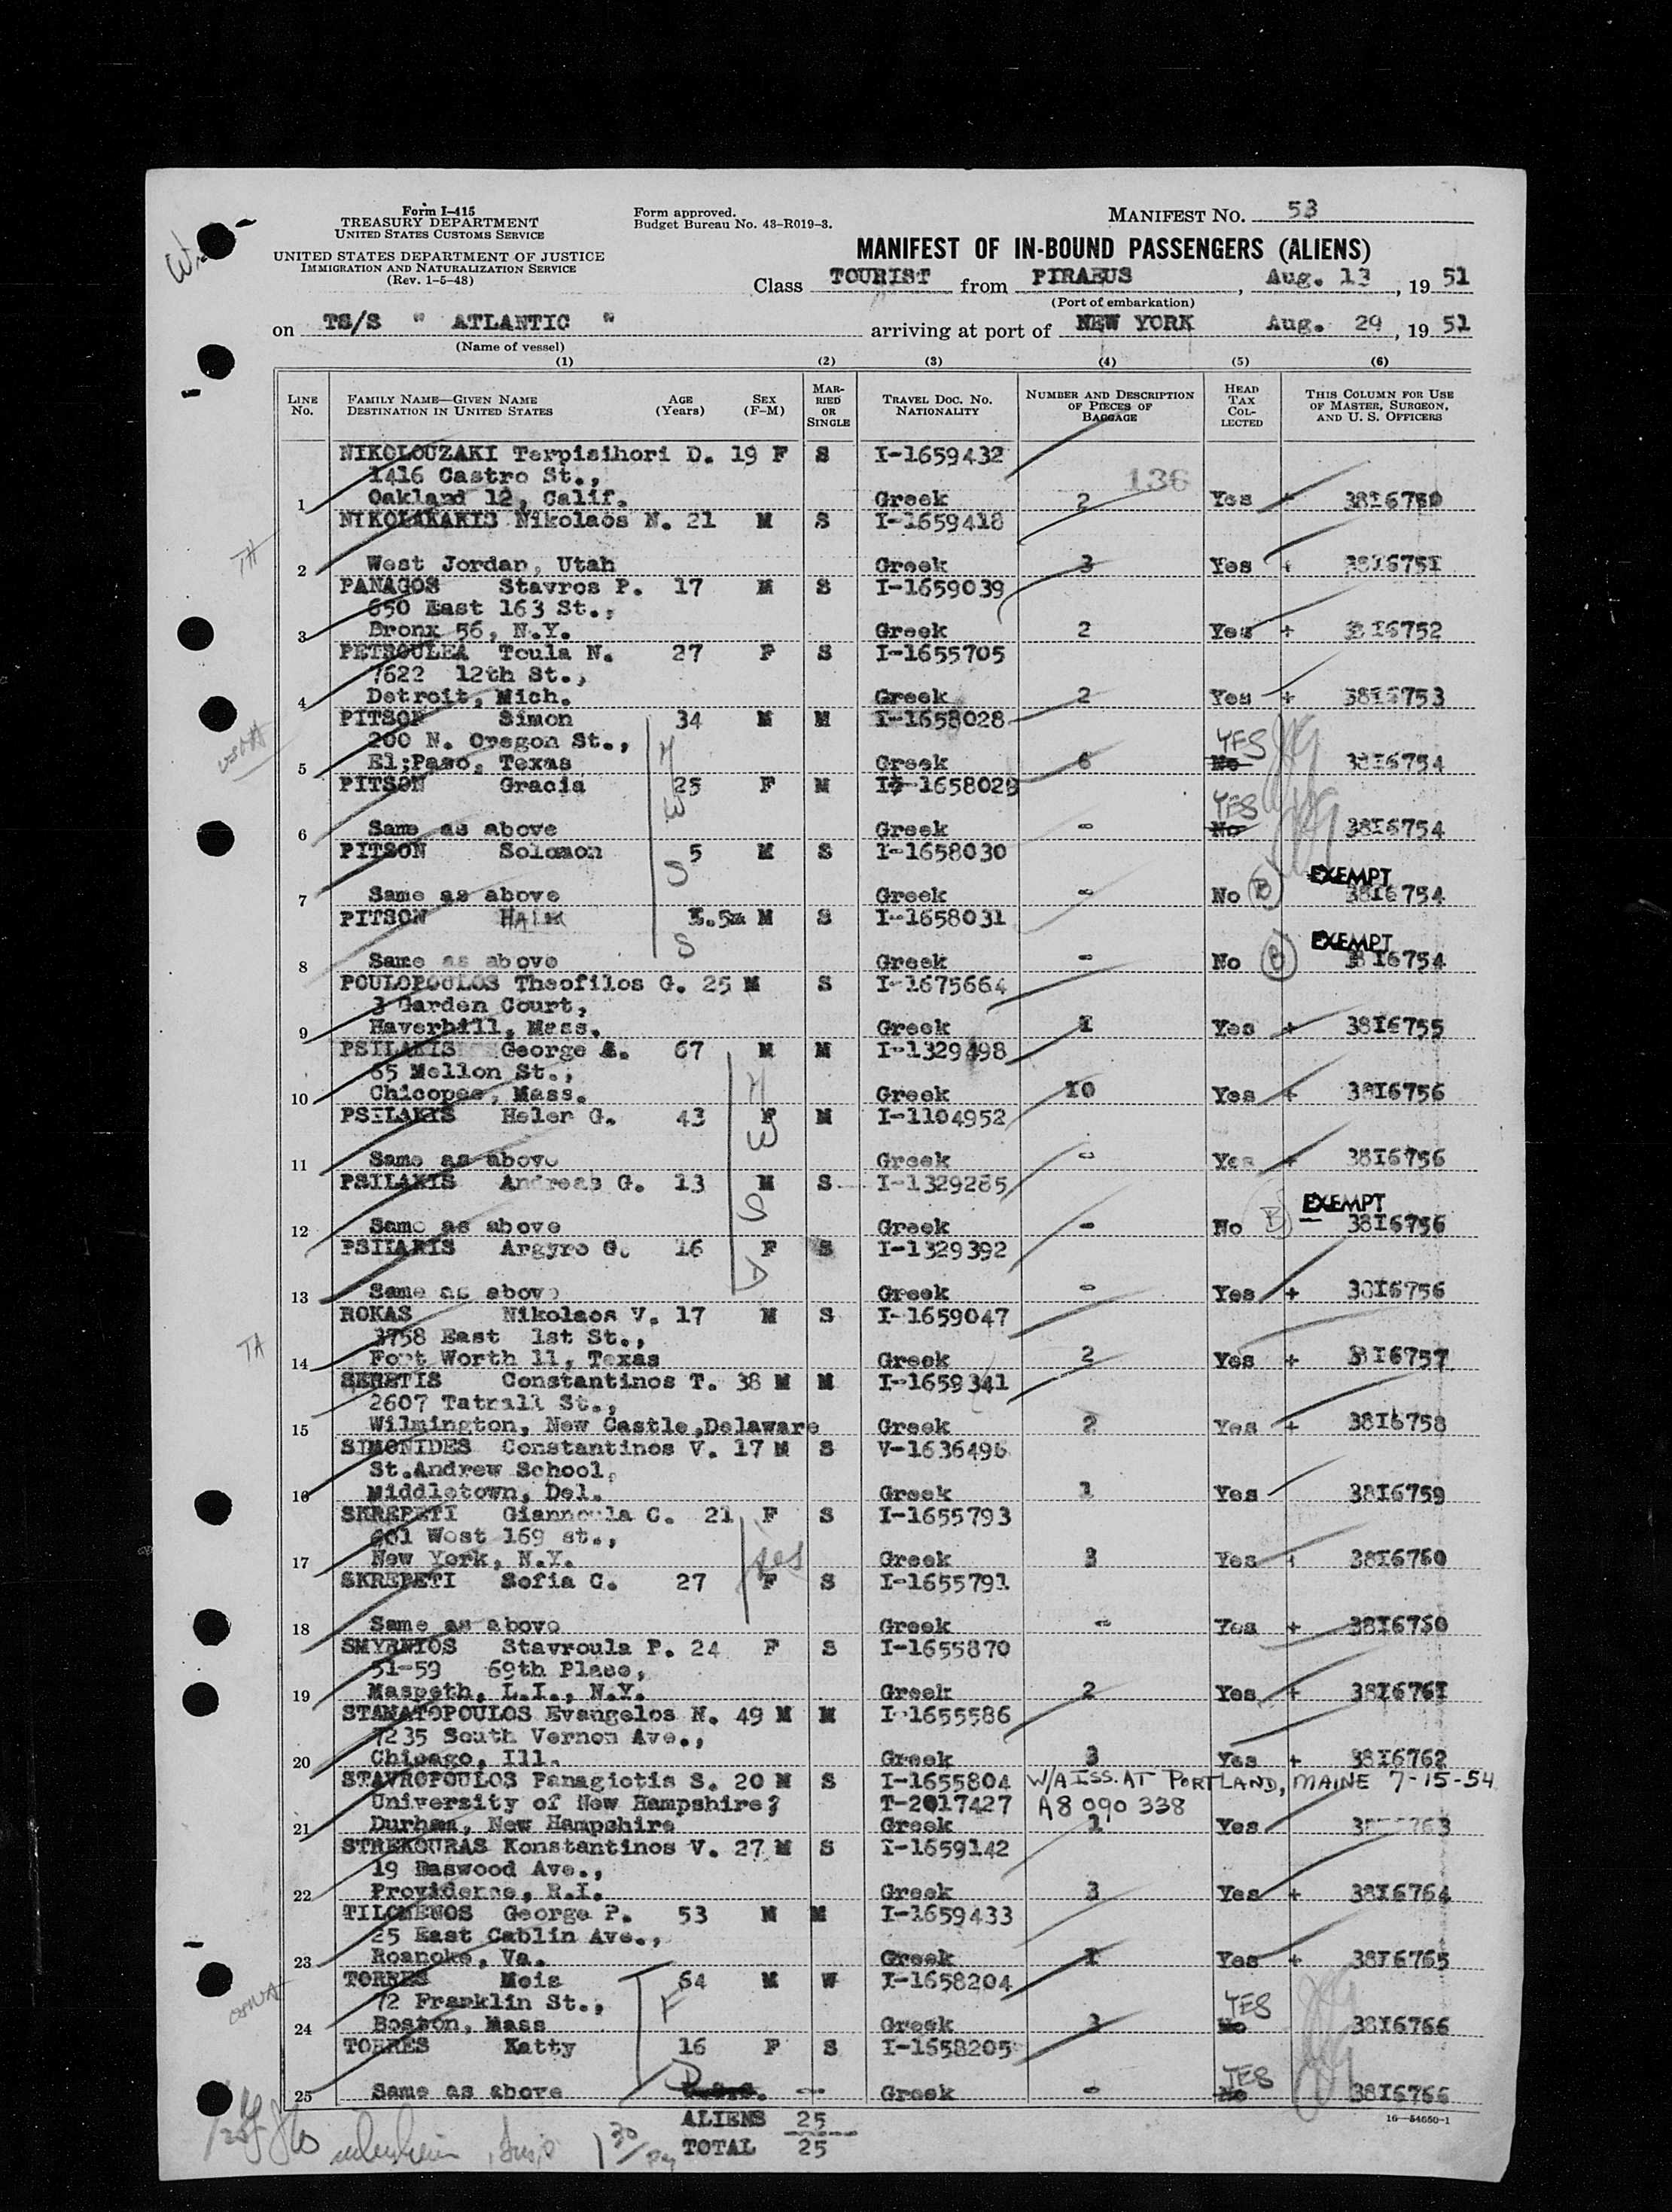 Form I-415
TREASURY DEPARTMENT
UNITED STATES CUSTOMS SERVICE
UNITED STATES DEPARTMENT OF JUSTICE
IMMIGRATION AND NATURALIZATION SERVICE
(Rev. 1-5-48)
Form approved.
Budget Bureau No. 43-R019-3.
MANIFEST NO. 53
MANIFEST OF IN-BOUND PASSENGERS (ALIENS)
Class TOURIST from PIRAEUS, Aug. 13, 1951
(Port of embarkation)
on TS/S " ATLANTIC " arriving at port of NEW YORK Aug. 29, 1951
(Name of vessel)
(1) (2) (3) (4) (5) (6)
LINE NO. FAMILY NAME—GIVEN NAME DESTINATION IN UNITED STATES AGE (Years) SEX (F-M) MARRIED OR SINGLE TRAVEL DOC. NO. NATIONALITY NUMBER AND DESCRIPTION OF PIECES OF BAGGAGE HEAD TAX COLLECTED THIS COLUMN FOR USE OF MASTER, SURGEON, AND U. S. OFFICERS
NIKOLOUZAKI Terpisihori D. 19 F S I-1659432
1416 Castro St., 136
1 Oakland 12, Calif. Greek 2 Yes + 38I6750
NIKOLAKAKIS Nikolaos N. 21 M S I-1659418
TA
2 West Jordan, Utah Greek 3 Yes + 38I6751
PANAGOS Stavros P. 17 M S I-1659039
650 East 163 St.,
3 Bronx 56, N.Y. Greek 2 Yes + 38I6752
PETROULEA Toula N. 27 F S I-1655705
7622 12th St.,
4 Detroit, Mich. Greek 2 Yes + 38I6753
PITSON Simon 34 M M I-1658028
200 N. Oregon St., H YES
5 El;Paso, Texas Greek 6 No 38I6754
PITSON Gracia 25 F M I-1658029
W YES
6 Same as above Greek - No 38I6754
PITSON Solomon 5 M S I-1658030
S EXEMPT
7 Same as above Greek - No B 38I6754
PITSON HAIM M S I-1658031
S EXEMPT
8 Same as above Greek - No B 38I6754
POULOPOULOS Theofilos G. 25 M S I-1675664
3 Garden Court,
9 Haverhill, Mass. Greek 1 Yes + 38I6755
PSILAKIS George A. 67 M M I-1329498
65 Mellon St., H
10 Chicopee, Mass. Greek 10 Yes + 38I6756
PSILAKIS Helen G. 43 F M I-1104952
W
11 Same as above Greek - Yes + 38I6756
PSILAKIS Andreas G. 13 M S I-1329285
S EXEMPT
12 Same as above Greek - No B 38I6756
PSILAKIS Argyro G. 16 F S I-1329392
D
13 Same as above Greek - Yes + 38I6756
ROKAS Nikolaos V. 17 M S I-1659047
3758 East 1st St.,
TA
14 Fort Worth 11, Texas Greek 2 Yes + 38I6757
SERETIS Constantinos T. 38 M M I-1659341
2607 Tatnall St.,
15 Wilmington, New Castle,Delaware Greek 2 Yes + 38I6758
SIMONIDES Constantinos V. 17 M S V-1636496
St.Andrew School,
16 Middletown, Del. Greek 1 Yes 38I6759
SKREPETI Giannoula C. 21 F S I-1655793
601 West 169 st.,
17 New York, N.Y. Greek 3 Yes + 38I6760
SKREPETI Sofia C. 27 F S I-1655791
18 Same as above Greek - Yes + 38I6760
SMYRNIOS Stavroula P. 24 F S I-1655870
51-59 69th Place,
19 Maspeth, L.I., N.Y. Greek 2 Yes + 38I6761
STAMATOPOULOS Evangelos N. 49 M M I-1655586
7235 South Vernon Ave.,
20 Chicago, Ill. Greek 3 Yes + 38I6762
STAVROPOULOS Panagiotis S. 20 M S I-1655804 W/A ISS. AT PORTLAND, MAINE 7-15-54
University of New Hampshire; T-2017427 A8 090 338
21 Durham, New Hampshire Greek 1 Yes
STREKOURAS Konstantinos V. 27 M S I-1659142
19 Baswood Ave.,
22 Providence, R.I. Greek 3 Yes + 38I6764
TILOMENOS George P. 53 M M I-1659433
25 East Cablin Ave.,
23 Roanoke, Va. Greek 1 Yes + 38I6765
TORRES Mois 64 M W I-1658204
72 Franklin St., F YES
24 Boston, Mass Greek 3 No 38I6766
TORRES Katty 16 F S I-1658205
D YES
25 Same as above Greek - No 38I6766
16—54650-1
ALIENS 25
TOTAL 25